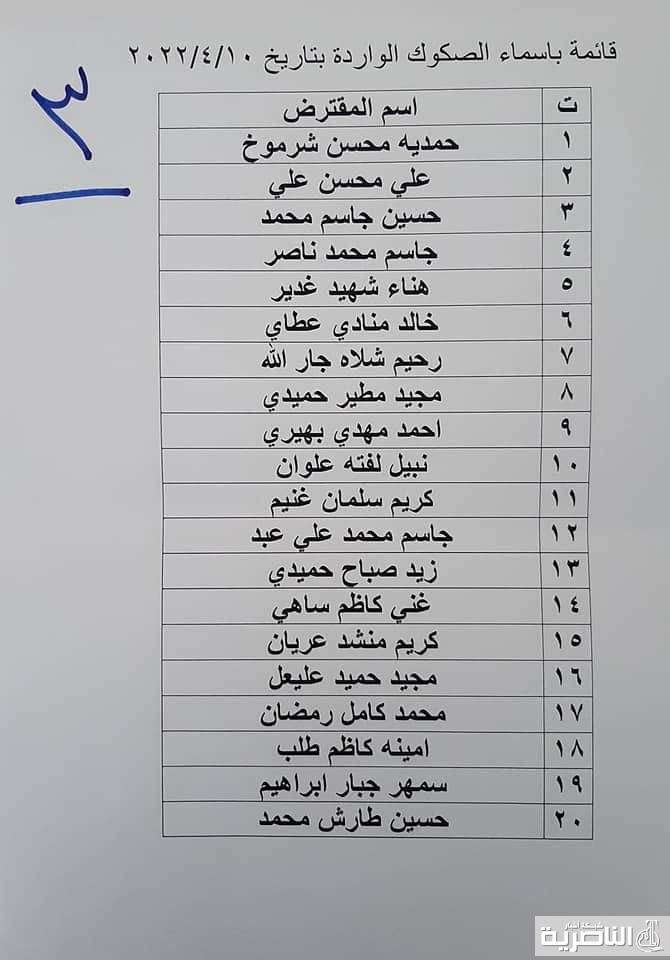 قائمة باسماء الصكوك الواردة بتاريخ ٢٠٢٢/٤/١٠
٣
ت اسم المقترض
١ حمديه محسن شرموخ
٢ علي محسن علي
٣ حسين جاسم محمد
٤ جاسم محمد ناصر
٥ هناء شهيد غدير
٦ خالد منادي عطاي
٧ رحيم شلاه جار الله
٨ مجيد مطير حميدي
٩ احمد مهدي بهيري
١٠ نبيل لفته علوان
١١ كريم سلمان غنيم
١٢ جاسم محمد علي عبد
١٣ زيد صباح حميدي
١٤ غني كاظم ساهي
١٥ كريم منشد عريان
١٦ مجيد حميد عليعل
١٧ محمد كامل رمضان
١٨ امينه كاظم طلب
١٩ سمهر جبار ابراهيم
٢٠ حسين طارش محمد
شبكة اخبار
الناصرية